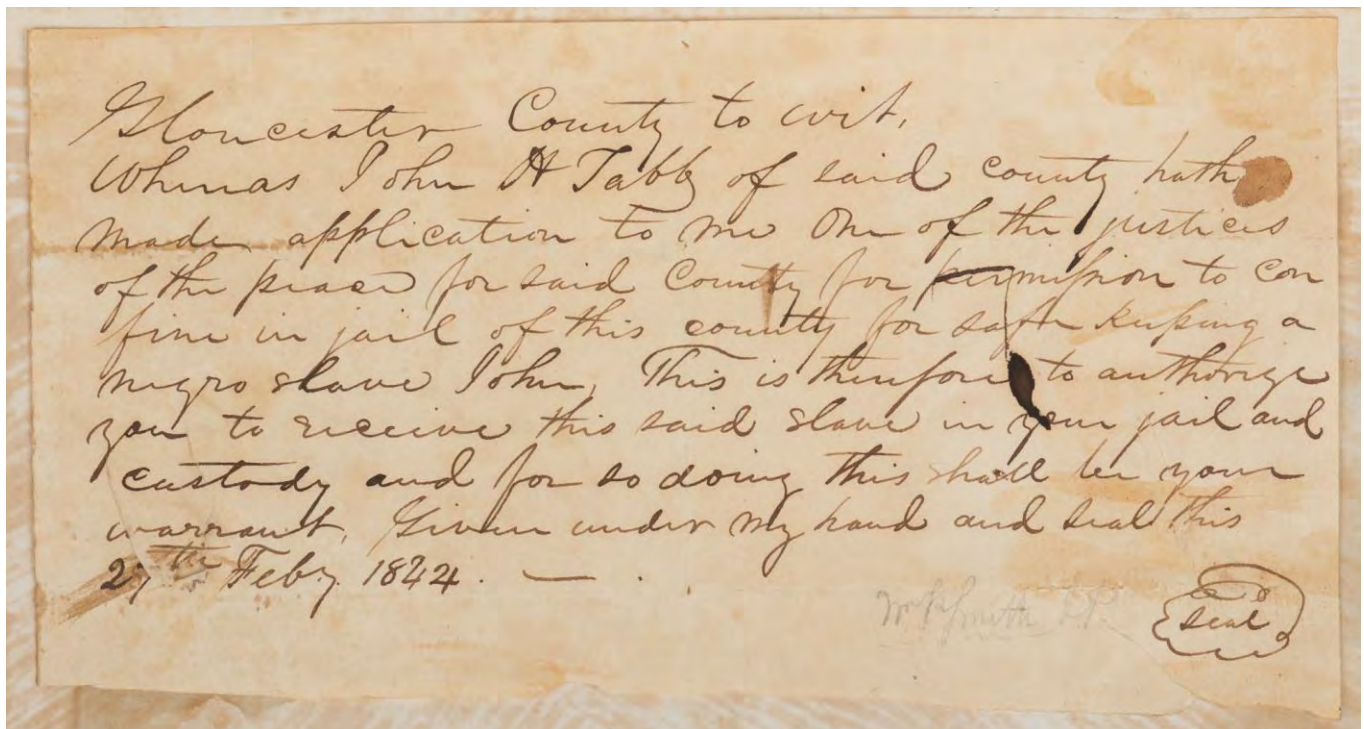 Gloucester County to wit,
Whereas John H Tabb of said county hath
made application to me One of the justices
of the peace for said County for permission to con
fine in jail of this county for safe keeping a
negro slave John, This is therefore to authorize
you to receive this said slave in your jail and
custody and for so doing this shall be your
warrant, Given under my hand and seal this
27th Feby. 1844. —
Smith J.P.
Seal